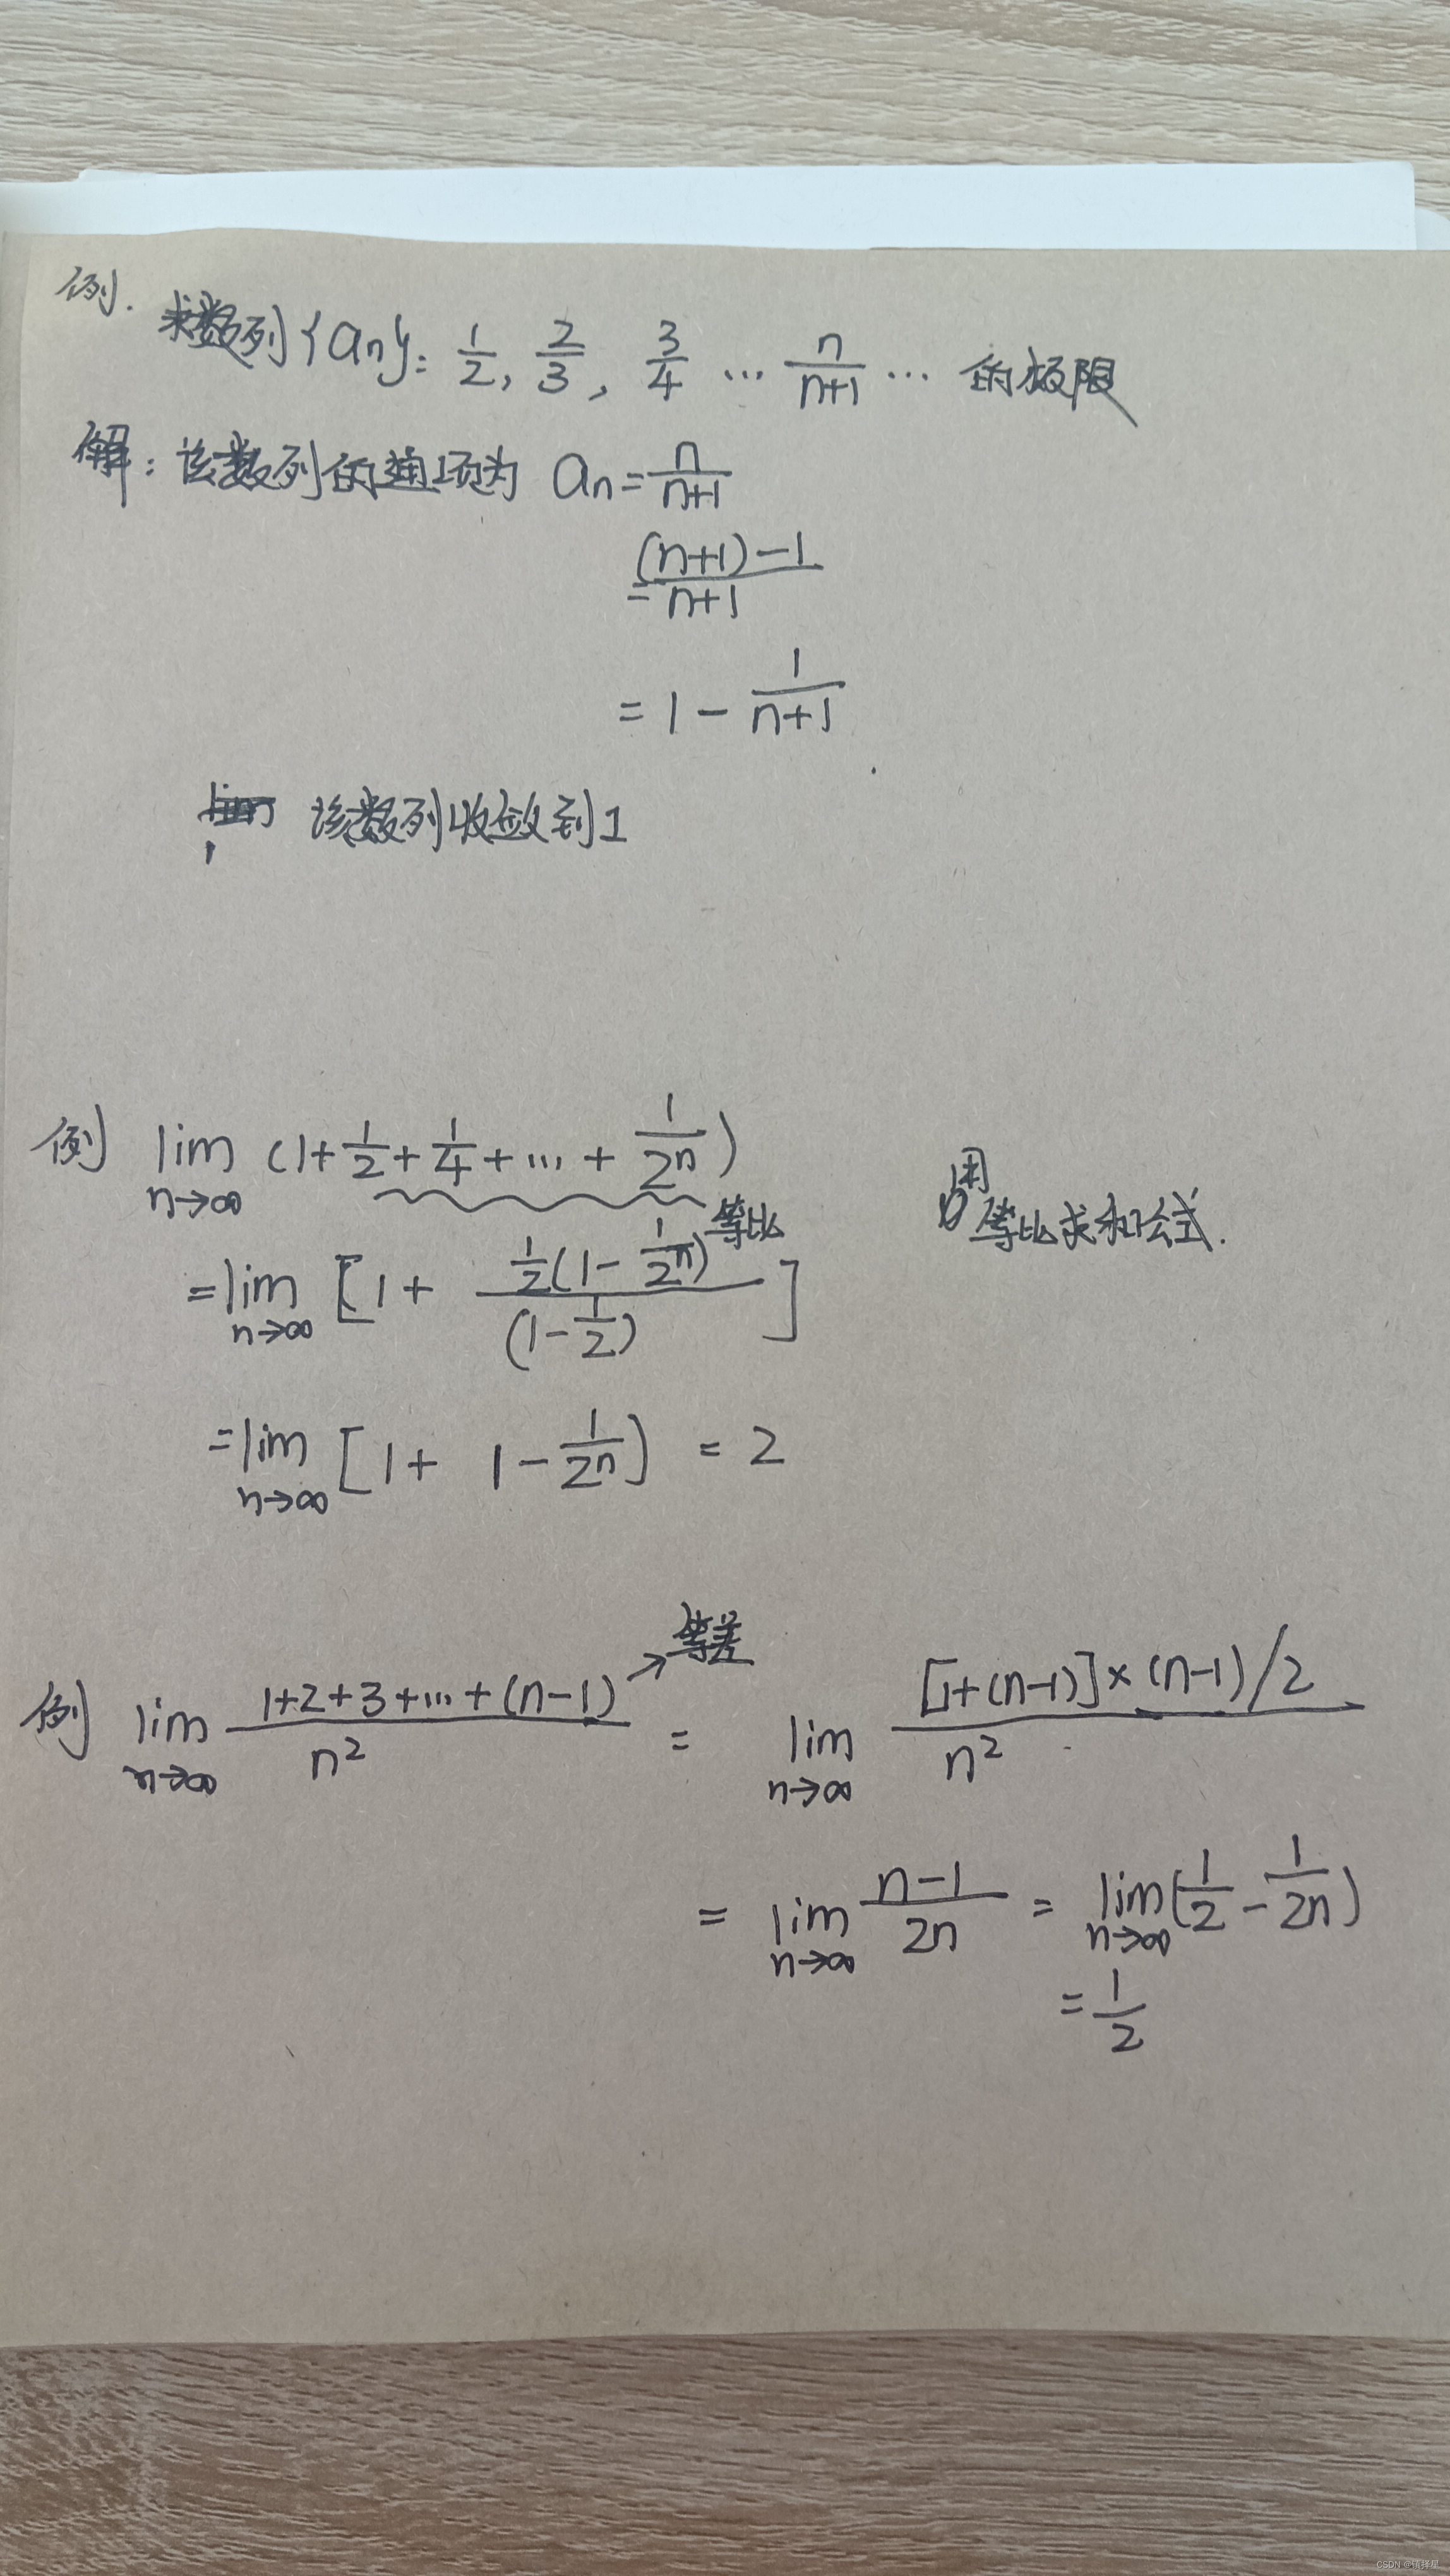 例. 求数列{an}: 1/2, 2/3, 3/4 … n/(n+1) … 的极限
解: 该数列的通项为 an = n/(n+1)
= ((n+1)-1)/(n+1)
= 1 - 1/(n+1)
该数列收敛到1
例 lim n→∞ (1 + 1/2 + 1/4 + … + 1/2^n)
等比
用等比求和公式.
= lim n→∞ [1 + (1/2(1 - 1/2^n))/(1 - 1/2)]
= lim n→∞ [1 + 1 - 1/2^n] = 2
等差
例 lim n→∞ (1+2+3+…+(n-1))/n² = lim n→∞ ([1+(n-1)]×(n-1)/2)/n²
= lim n→∞ (n-1)/2n = lim n→∞ (1/2 - 1/2n)
= 1/2